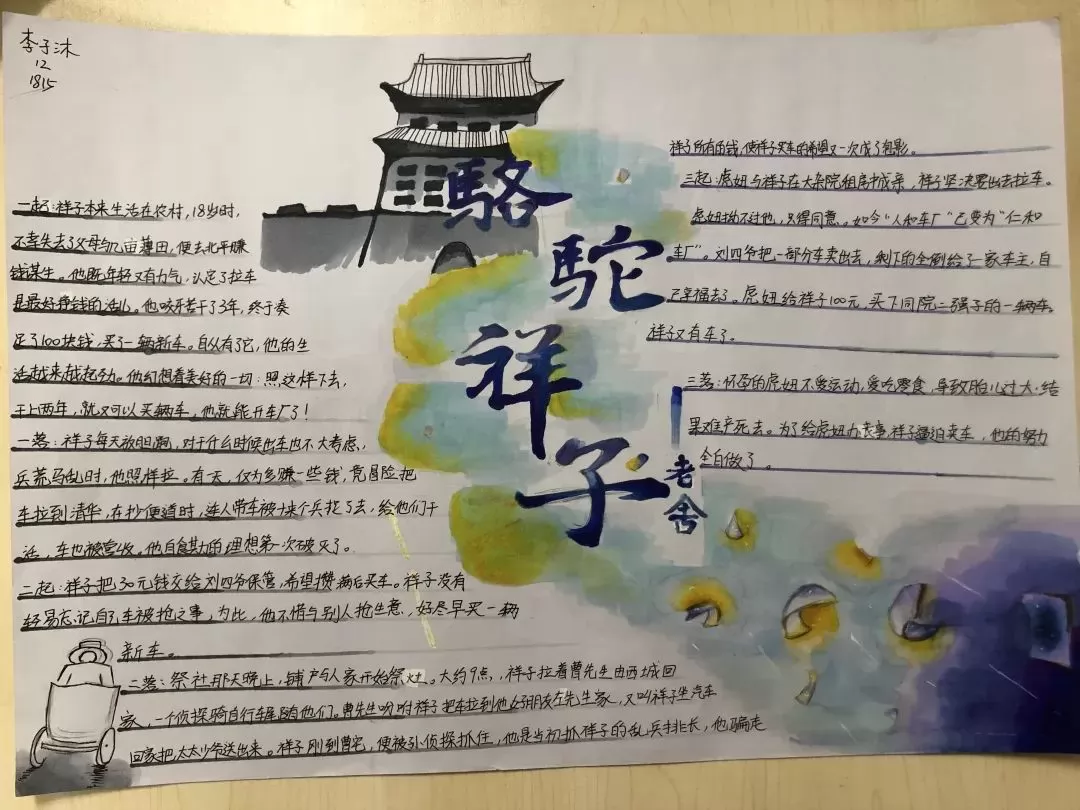 李子沐
12
1815
駱
駝
祥
子
老舍
一起：祥子本来生活在农村，18岁时，
不幸失去了父母与几亩薄田，便去北平赚
钱谋生。他既年轻又有力气，认定了拉车
是最好挣钱的活儿。他咬牙苦干了3年，终于凑
足了100块钱，买了一辆新车。自从有了它，他的生
活越来越起劲。他幻想着美好的一切：照这样下去，
干上两年，就又可以买辆车，他就能开车厂了！
一落：祥子每天放胆跑，对于什么时候出车也不大考虑，
兵荒马乱时，他照样拉。有天，仅为多赚一些钱，竟冒险把
车拉到清华，在抄便道时，连人带车被十来个兵捉了去，给他们干
活，车也被营收。他自食其力的理想第一次破灭了。
二起：祥子把30元钱交给刘四爷保管，希望攒够后买车。祥子没有
轻易忘记自己车被抢之事，为此，他不惜与别人抢生意，好尽早买一辆
新车。
二落：祭灶那天晚上，铺户与人家开始祭灶。大约9点，祥子拉着曹先生由西城回
家，一个侦探骑自行车尾随他们。曹先生吩咐祥子把车拉到他好朋友左先生家，又叫祥子坐汽车
回家把太太少爷送出来。祥子刚到曹宅，便被孙侦探抓住，他是当初抓祥子的乱兵排长，他骗走
祥子所有的钱，使祥子买车的希望又一次成了泡影。
三起：虎妞与祥子在大杂院租房成亲，祥子坚决要出去拉车。
虎妞拗不过他，只得同意。如今“人和车厂”已变为“仁和
车厂”。刘四爷把一部分车卖出去，剩下的全倒给了一家车主，自
己享福去了。虎妞给祥子100元，买下同院二强子的一辆车。
祥子又有车了。
三落：怀孕的虎妞不爱运动，爱吃零食，导致胎儿过大，结
果难产死去。为了给虎妞办丧事祥子逼迫卖车，他的努力
全白做了。